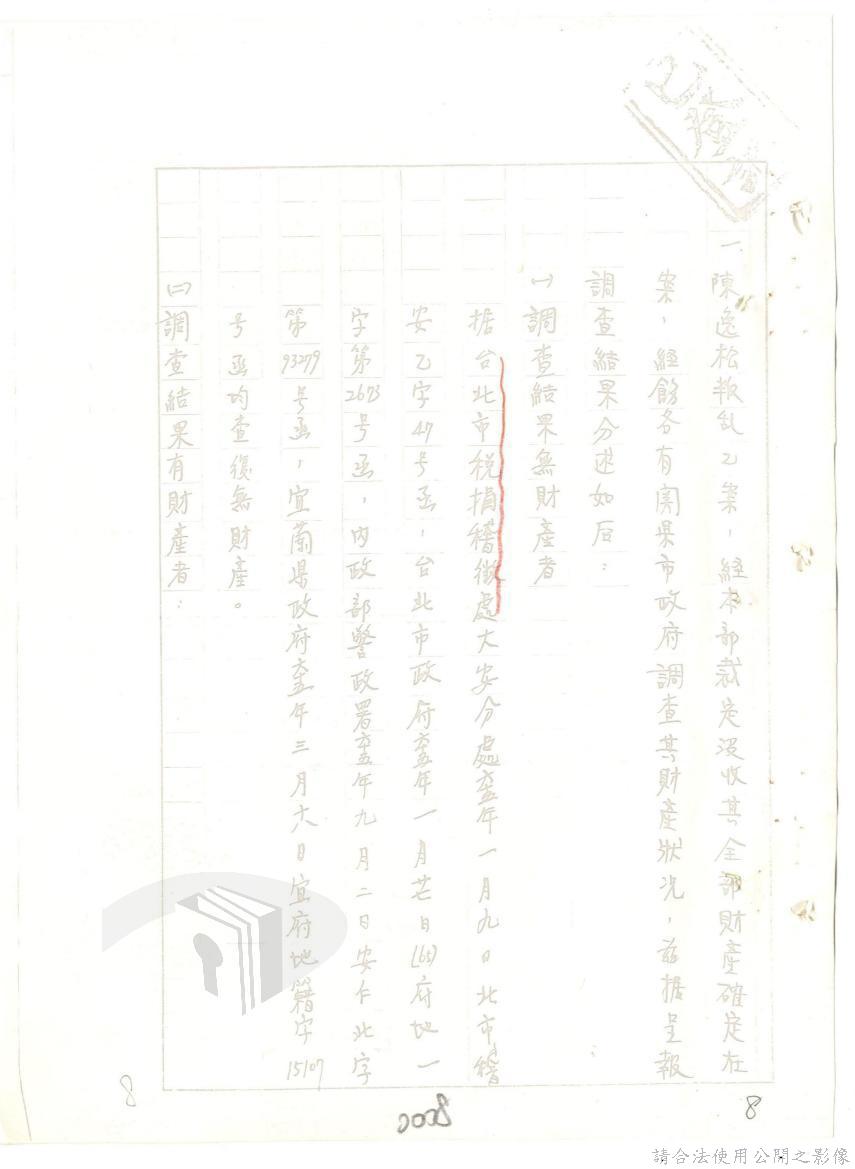 一、陳逸松叛乱乙案，経本部裁定沒收其全部財產確定在
案，経飭各有関県市政府調查其財產狀況，茲据呈報
調查結果分述如后：
㈠調查結果無財產者
据台北市稅捐稽徵處大安分處六五年一月九日北市稽
安乙字47号函，台北市政府六五年一月廿日(65)府地一
字第2673号函，內政部警政署六五年九月二日安仁北字
第93279号函，宜蘭県政府六五年三月十八日宜府地籍字15107
号函均查復無財產。
㈡調查結果有財產者：
8
0008
8
請合法使用公開之影像